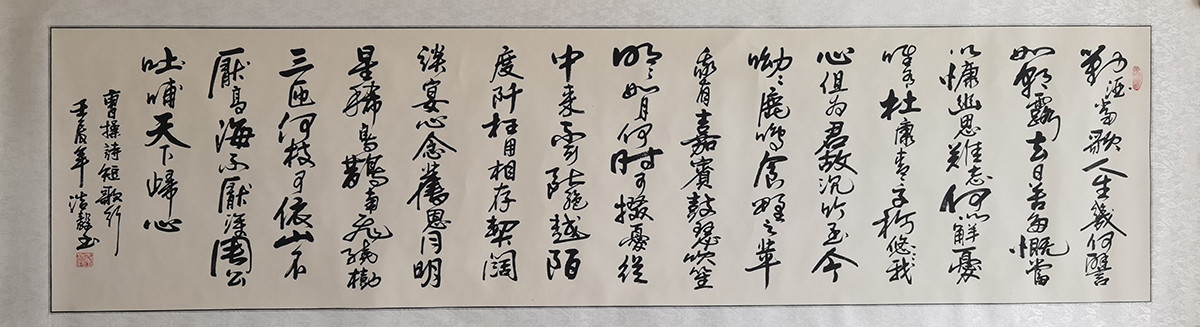 對酒當歌人生幾何譬
如朝露去日苦多慨當
以慷幽思難忘何以解憂
唯有杜康青々子衿悠々我
心但为君故沉吟至今
呦々鹿鳴食野之苹
我有嘉賓鼓瑟吹笙
明々如月何时可掇憂從
中来不可斷絕越陌
度阡枉用相存契闊
談宴心念舊恩月明
星稀烏鵲南飛繞樹
三匝何枝可依山不
厭高海不厭深周公
吐哺天下歸心
曹操詩短歌行
壬辰年浩书